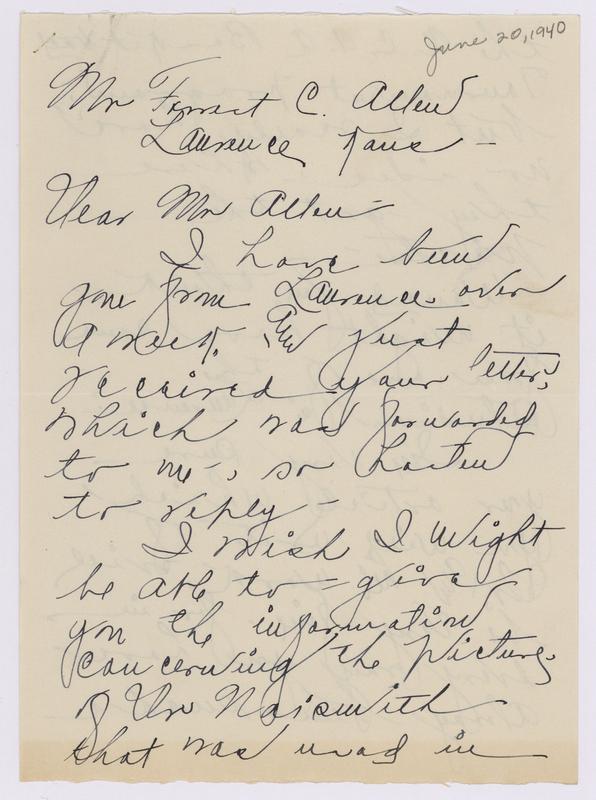 June 20, 1940
Mr Forrest C. Allen
Laurence, Kans -
Dear Mr Allen -
I have been
gone from Laurence over
a week, and just
received your letter,
which was forwarded
to me -, so hasten
to reply -
I wish I might
be able to give
you the information
concerning the picture,
of Dr Naismith
that was used in